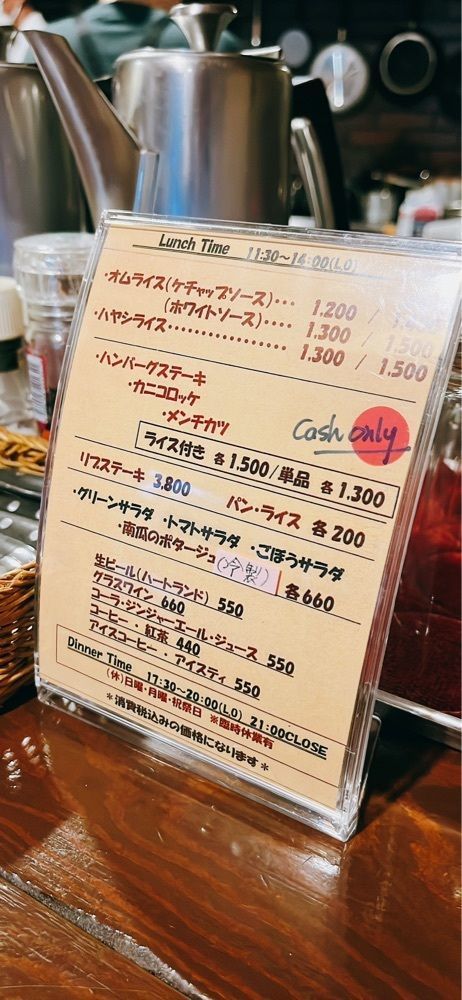 Lunch Time 11:30～14:00(L.O)
・オムライス(ケチャップソース)・・・ 1.200 /
(ホワイトソース)・・・ 1.300 / 1.500
・ハヤシライス・・・・・・・・・・・・・・・・・ 1.300 / 1.500
・ハンバーグステーキ
・カニコロッケ
・メンチカツ
Cash only
ライス付き 各1.500/単品 各1.300
リブステーキ 3.800 パン・ライス 各200
・グリーンサラダ ・トマトサラダ ・ごぼうサラダ
・南瓜のポタージュ(冷製) 各660
生ビール(ハートランド) 550
グラスワイン 660
コーラ・ジンジャーエール・ジュース 550
コーヒー・紅茶 440
アイスコーヒー・アイスティ 550
Dinner Time 17:30～20:00(L.O) 21:00CLOSE
(休)日曜・月曜・祝祭日 ※臨時休業有
＊消費税込みの価格になります＊